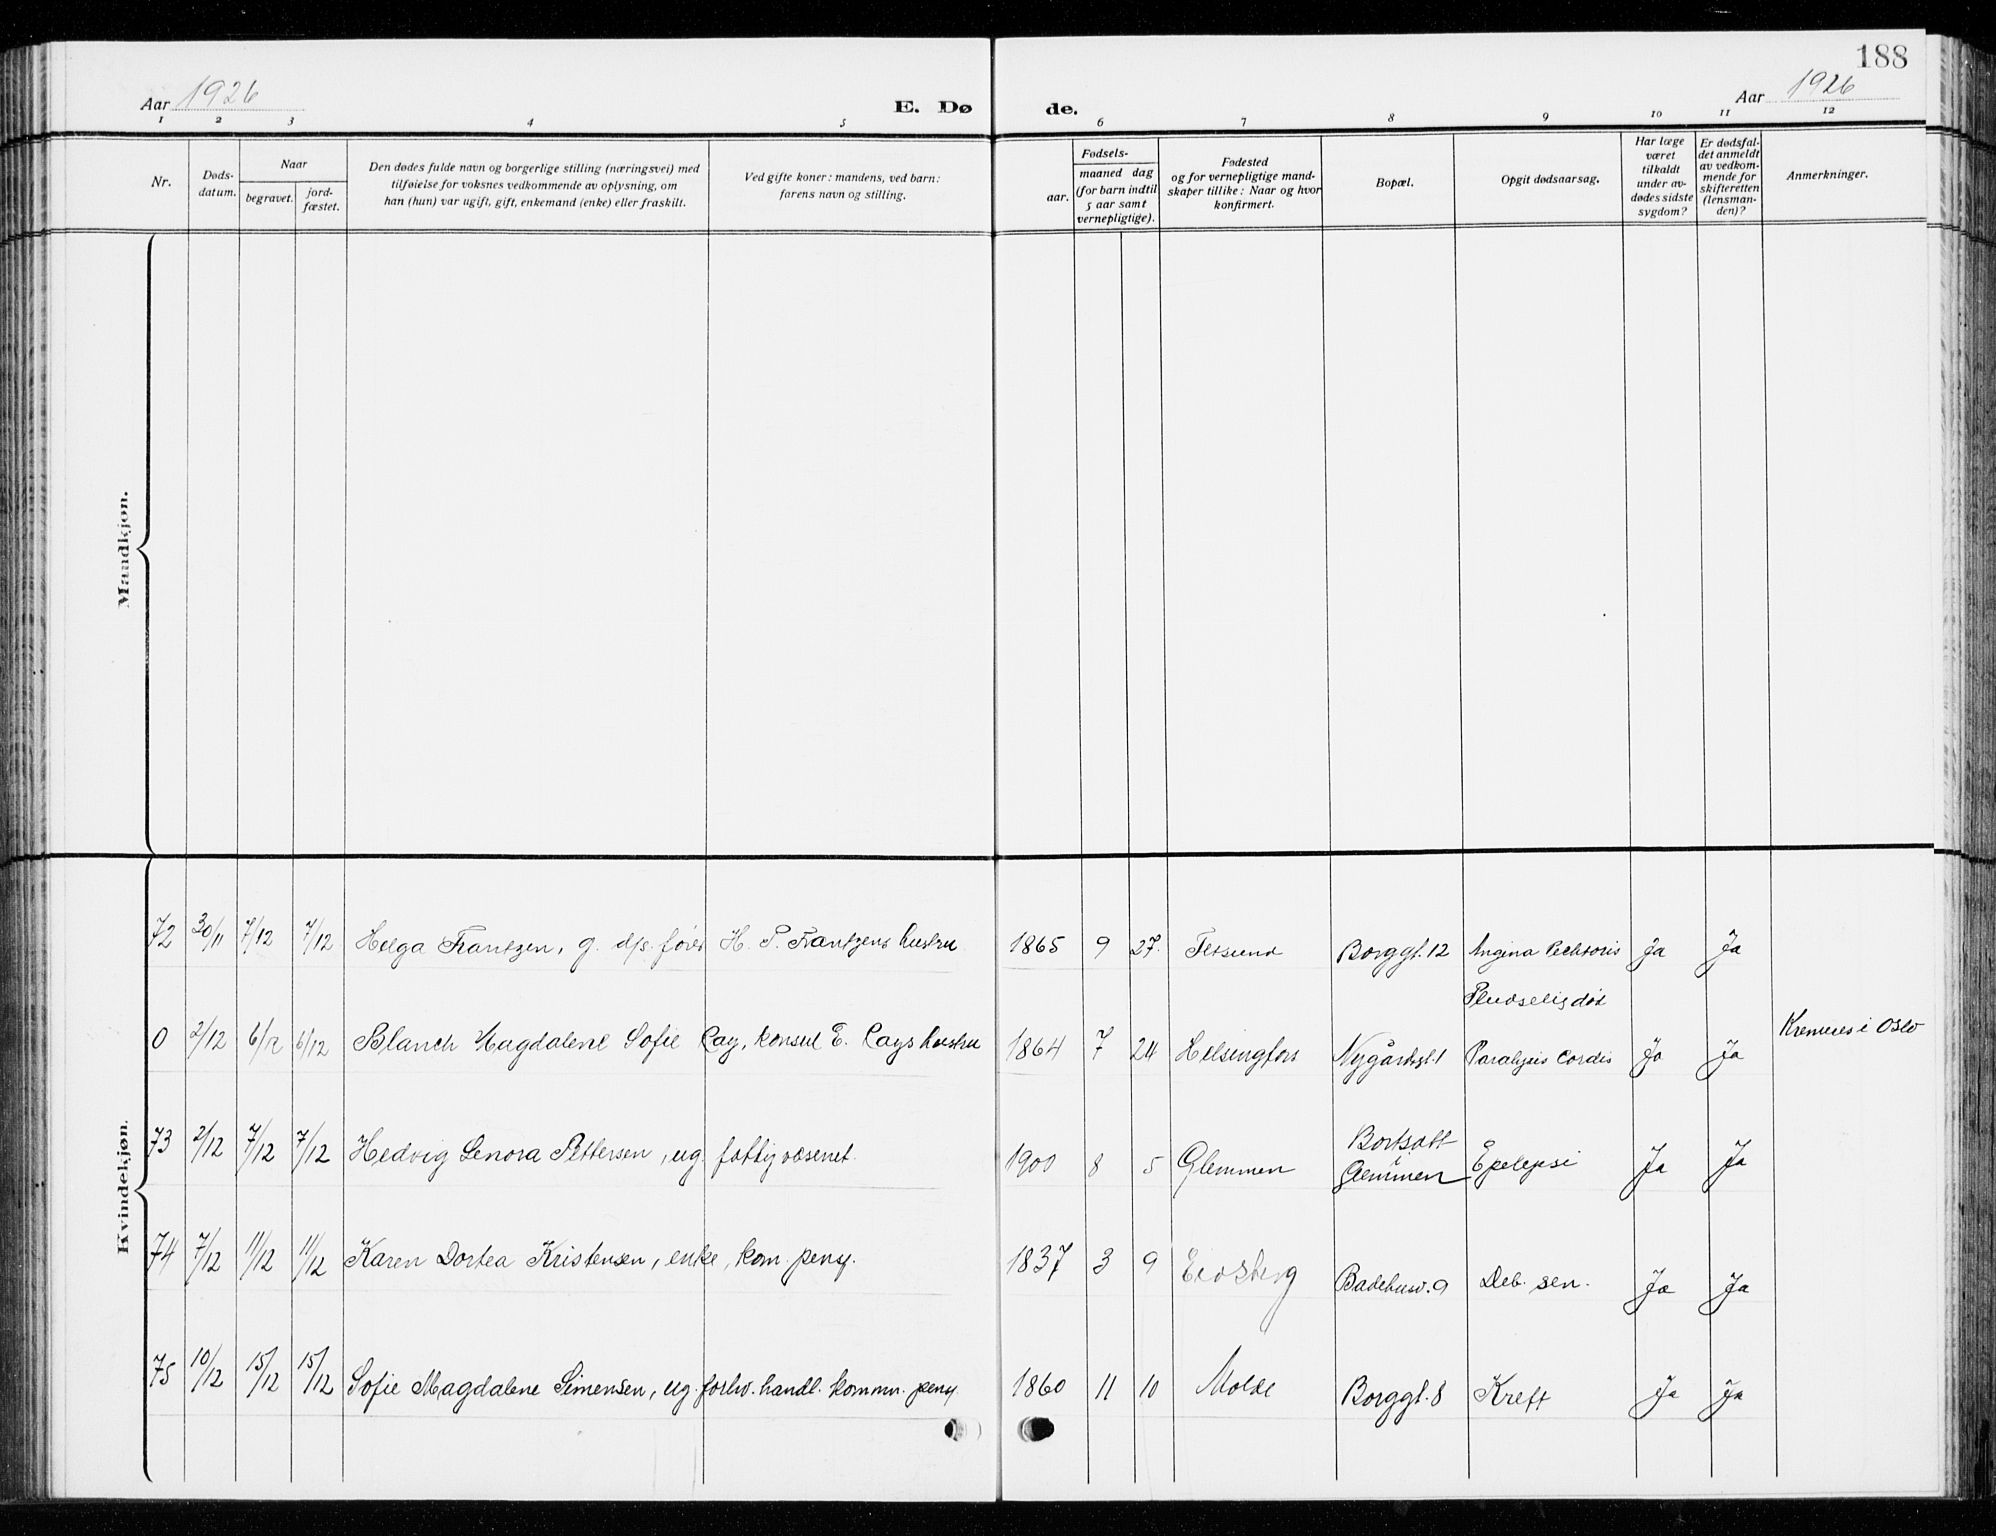 188
Aar 1926 E. Dø de. Aar 1926
1 2 3 4 5 6 7 8 9 10 11 12
Nr. Døds-datum. Naar begravet. jord-fæstet. Den dødes fulde navn og borgerlige stilling (næringsvei) med tilføielse for voksnes vedkommende av oplysning, om han (hun) var ugift, gift, enkemand (enke) eller fraskilt. Ved gifte koner: mandens, ved barn: farens navn og stilling. Fødsels- aar. maaned dag (for barn indtil 5 aar samt vernepligtige). Fødested og for vernepligtige mand-skaper tillike: Naar og hvor konfirmert. Bopæl. Opgit dødsaarsag. Har læge været tilkaldt under av-dødes sidste sygdom? Er dødsfal-det anmeldt av vedkom-mende for skifteretten (lensman-den)? Anmerkninger.
Mandkjøn.
Kvindekjøn.
72 30/11 7/12 7/12 Helga Frantzen, g. d/s. fører H. P. Frantzens hustru 1865 9 27. Fetsund Borggt. 12 Angina Pechtoris Ja Ja
Pludselig død
0 2/12 6/12 6/12 Blanch Magdalene Sofie Cay, konsul E. Cays hustru 1864 7 24 Helsingfors Nygårdsgt. 1 Paralysis Cordis Ja Ja Kremeres i Oslo
73 2/12 7/12 7/12 Hedvig Lenora Pettersen, ug. fattigvæsenet. 1900 8 5 Glemmen Bortsatt i Glemmen Epelepsi Ja Ja
74 7/12 11/12 11/12 Karen Dortea Kristensen, enke, kom. pensj. 1837 3 9 Eidsberg Badehusv. 9 Deb. sen. Ja Ja
75 10/12 15/12 15/12 Sofie Magdalene Simensen, ug. forhv. handl. kommn. pensj. 1860 11 10 Molde Borggt. 8 Kreft Ja Ja